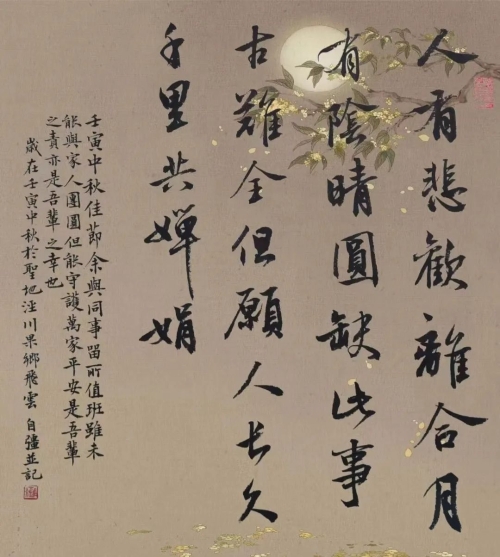 人有悲歡離合月
有陰晴圓缺此事
古難全但願人长久
千里共嬋娟
壬寅中秋佳節余與同事留所值班雖未
能與家人團圓但能守護萬家平安是吾輩
之責亦是吾輩之幸也
歲在壬寅中秋於聖地涇川果鄉飛雲自彊並記